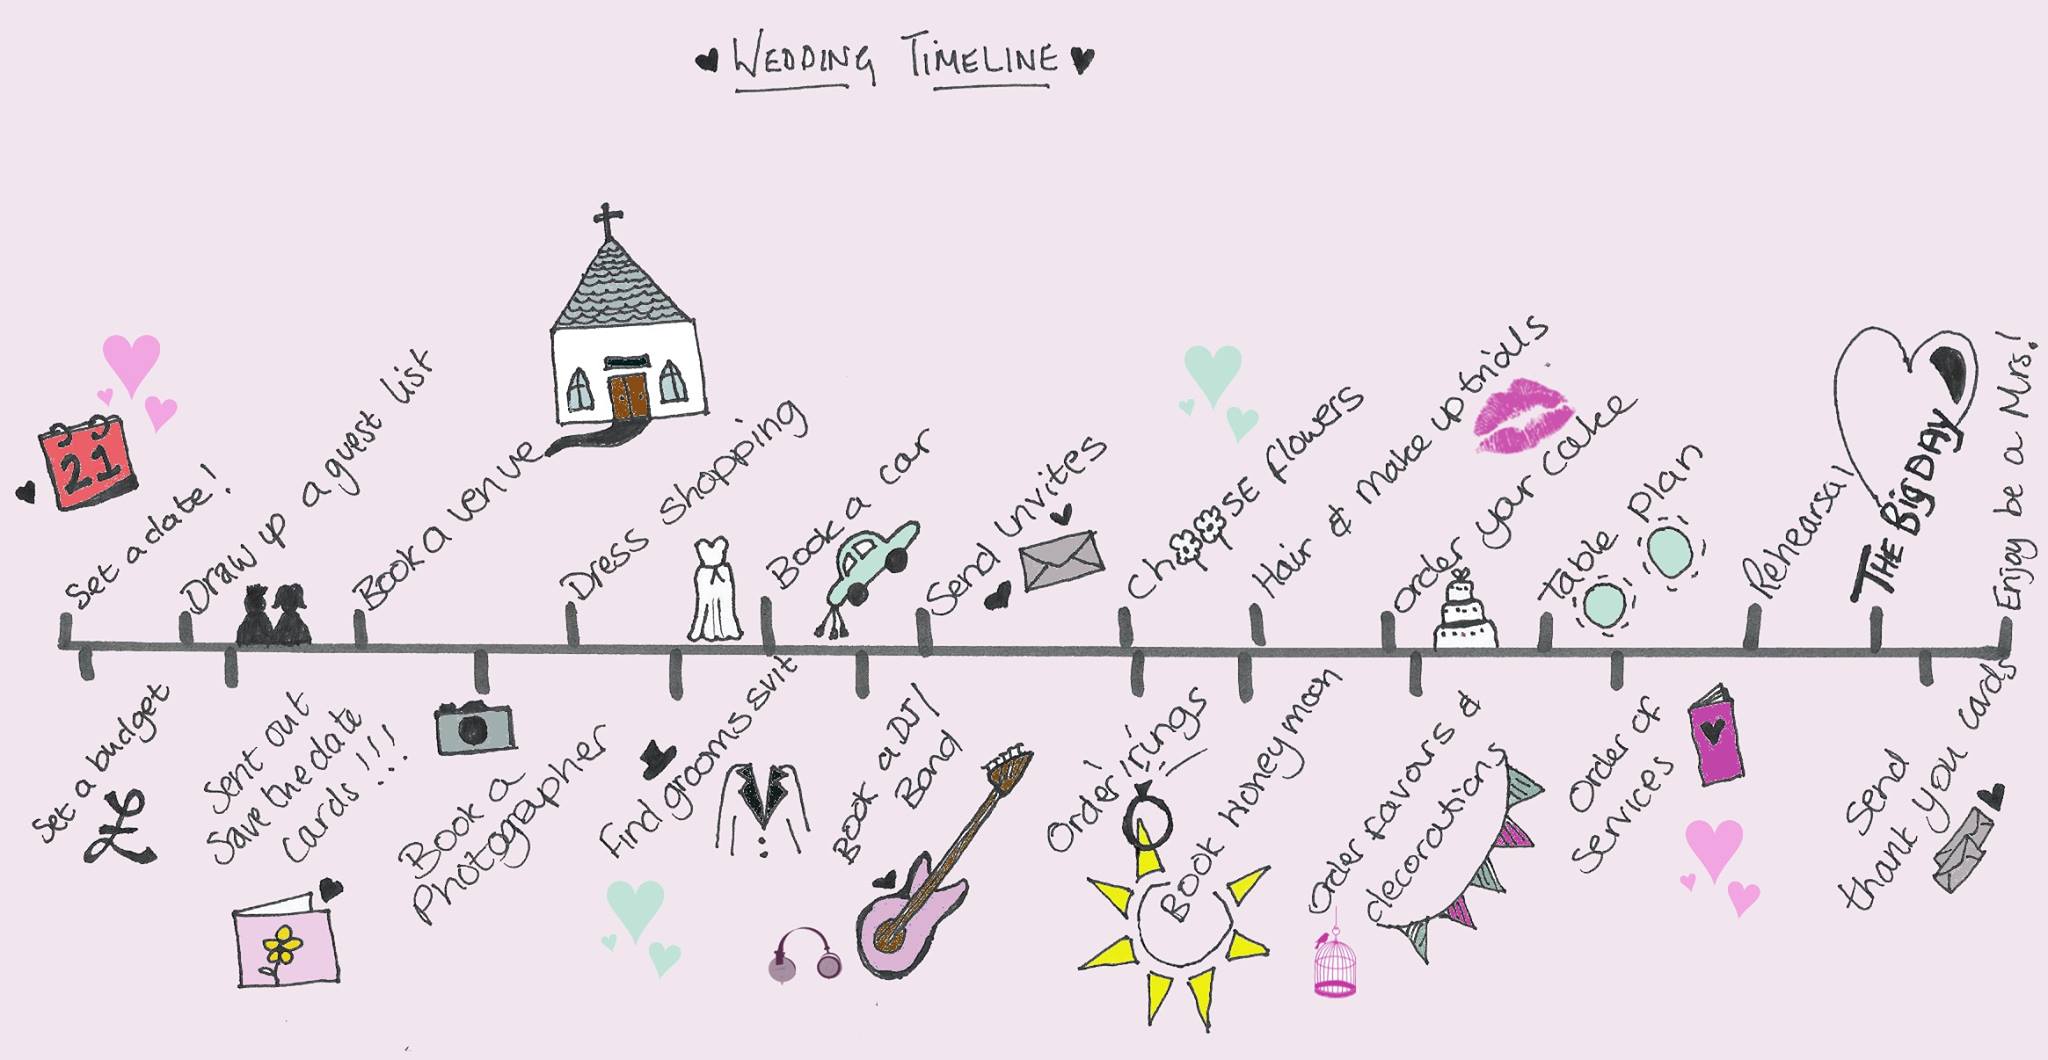 WEDDING TIMELINE
21
Set a date!
Draw up a guest list
Book a venue
Dress shopping
Book a car
Send invites
ChooSE flowers
Hair & Make up trials
Order your cake
Table Plan
Rehearsal
THE Big DAY
Enjoy be a Mrs!
Set a budget
£
Sent out
Save the date
cards!!!
Book a
Photographer
Find grooms suit
Book a DJ/
Band
Order rings
Book Honeymoon
Order favours &
decorations
Order of
Services
Send
thank you cards